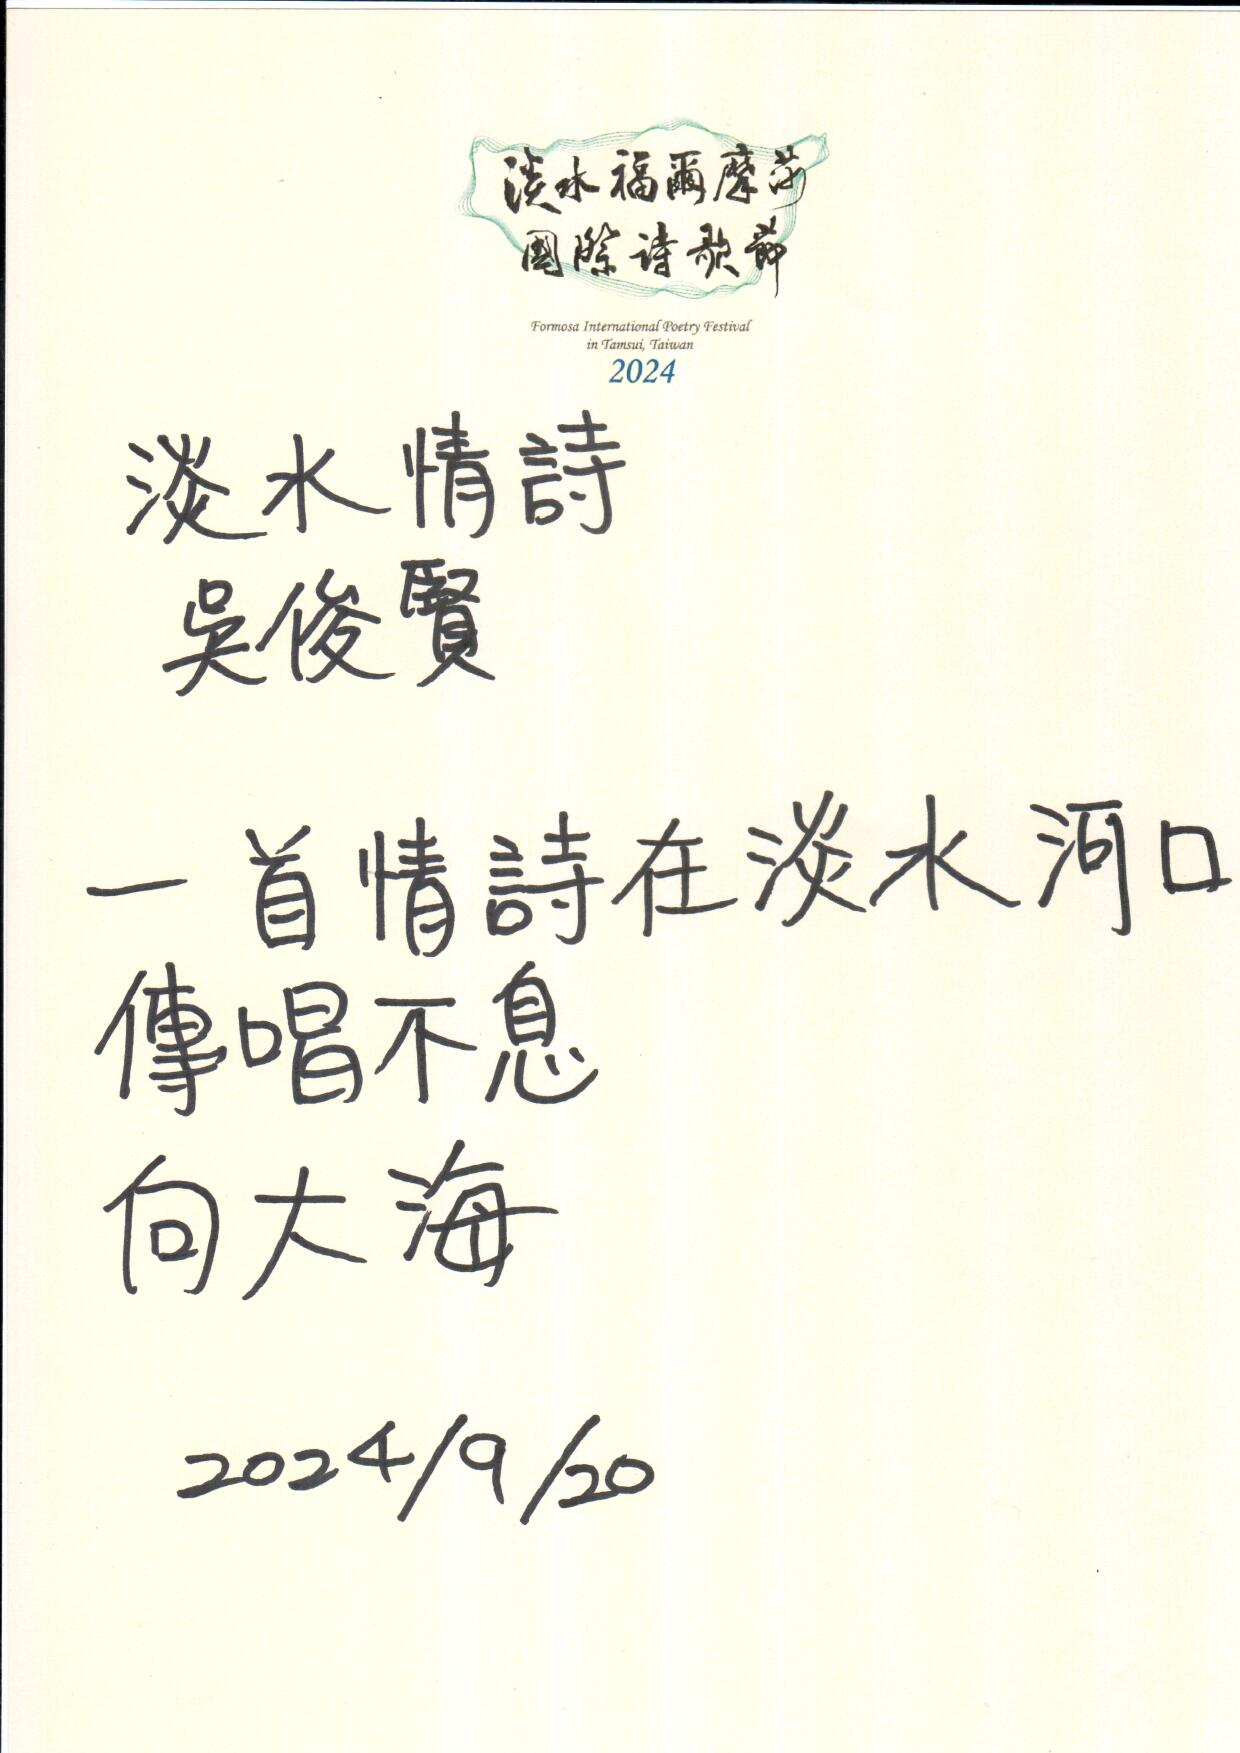 淡水福爾摩莎
國際詩歌節
Formosa International Poetry Festival
in Tamsui, Taiwan
2024
淡水情詩
吳俊賢
一首情詩在淡水河口
傳唱不息
向大海
2024/9/20